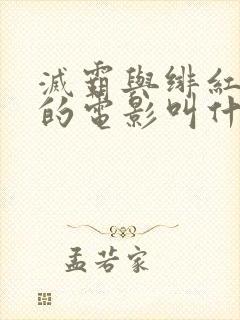 滅霸與緋紅
的電影叫什
孟若家